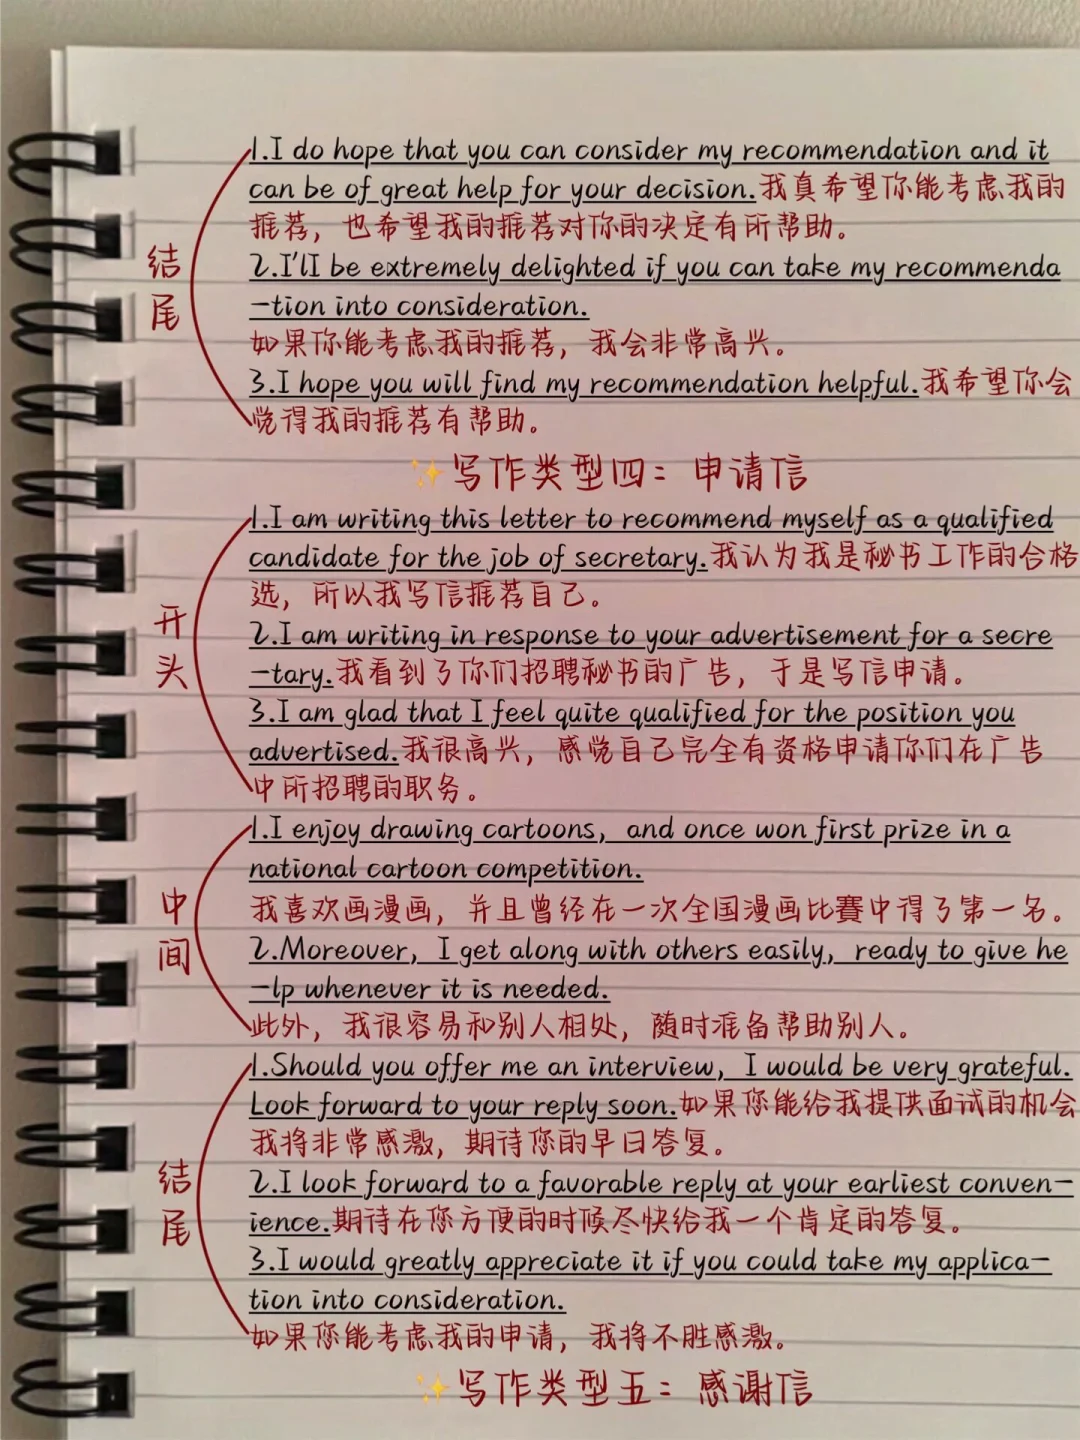 结尾
1.I do hope that you can consider my recommendation and it
can be of great help for your decision.我真希望你能考虑我的
推荐，也希望我的推荐对你的决定有所帮助。
2.I'lI be extremely delighted if you can take my recommenda
-tion into consideration.
如果你能考虑我的推荐，我会非常高兴。
3.I hope you will find my recommendation helpful.我希望你会
觉得我的推荐有帮助。
✨写作类型四：申请信
开头
1.I am writing this letter to recommend myself as a qualified
candidate for the job of secretary.我认为我是秘书工作的合格
选，所以我写信推荐自己。
2.I am writing in response to your advertisement for a secre
-tary.我看到了你们招聘秘书的广告，于是写信申请。
3.I am glad that I feel quite qualified for the position you
advertised.我很高兴，感觉自己完全有资格申请你们在广告
中所招聘的职务。
中间
1.I enjoy drawing cartoons, and once won first prize in a
national cartoon competition.
我喜欢画漫画，并且曾经在一次全国漫画比赛中得了第一名。
2.Moreover, I get along with others easily, ready to give he
-lp whenever it is needed.
此外，我很容易和别人相处，随时准备帮助别人。
结尾
1.Should you offer me an interview, I would be very grateful.
Look forward to your reply soon.如果您能给我提供面试的机会
我将非常感激，期待您的早日答复。
2.I look forward to a favorable reply at your earliest conven-
ience.期待在您方便的时候尽快给我一个肯定的答复。
3.I would greatly appreciate it if you could take my applica-
tion into consideration.
如果您能考虑我的申请，我将不胜感激。
✨写作类型五：感谢信